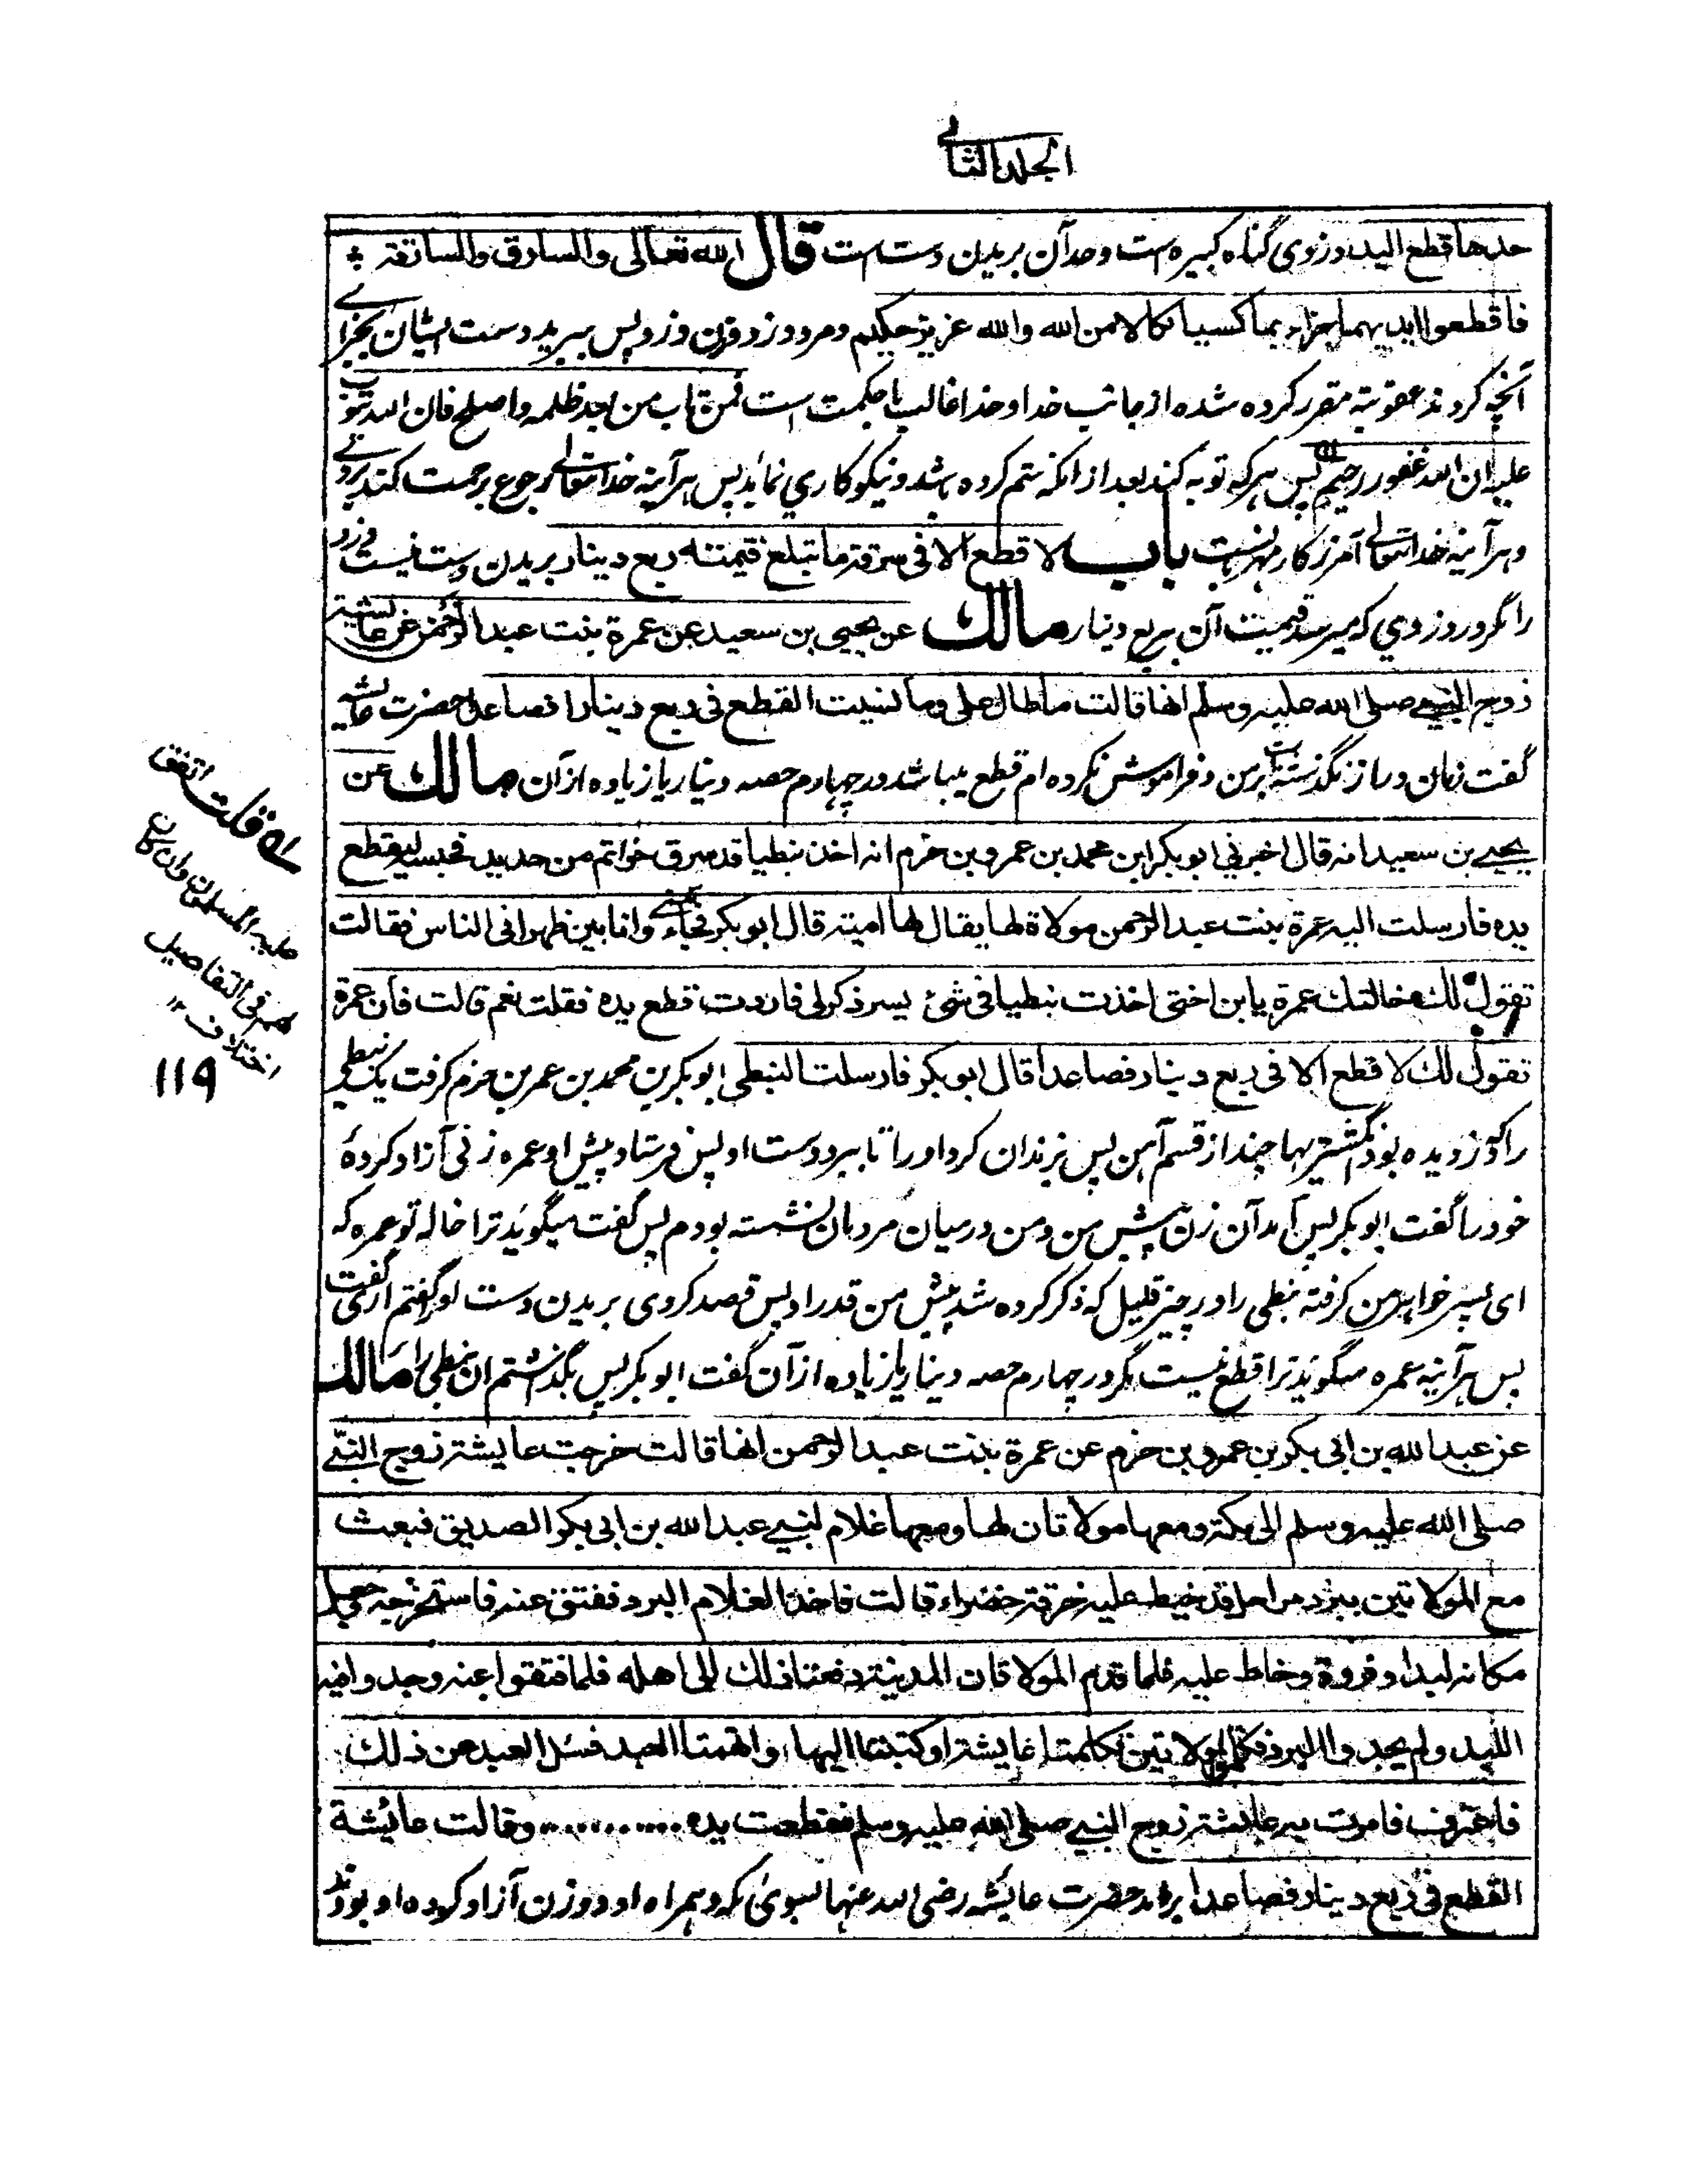 الجلد الثانے
حدها قطع الید دزدی گناه کبیره ست وحد آن بریدن دست ست قال الله تعالی والسارق والسارقة
فاقطعوا ایدیهما جزاء بما کسبا نکالا من الله والله عزیز حکیم ومرد دزد وزن دزد پس ببرید دست ایشان بجزائے
آنچه کردند عقوبتے مقرر کرده شده از جانب خدا وخدا غالب با حکمت است فمن تاب من بعد ظلمه واصلح فان الله یتوب
علیه ان الله غفور رحیم پس هرکه توبه کند بعد از انکه ستم کرده باشد ونیکوکاری نماید پس هرآینه خدا تعالے رجوع برحمت کند بروے
وهرآینه خدا تعالے آمرزگار مهربانست باب لا قطع الا فی سرقة ما تبلغ قیمتنه ربع دینار بریدن دست نیست دزد
را مگر در دزدی که میرسد قیمت آن بربع دینار مالك عن یحیی بن سعید عن عمرة بنت عبدالرحمن عن عایشة
زوج النبے صلی الله علیه وسلم انها قالت ما طال علی وما نسیت القطع فی ربع دینار فصاعدا حضرت عایشه
گفت زمان دراز نگذشته است برمن وفراموش نکرده ام قطع میباشد در چهارم حصه دینار یا زیاده از آن مالك عن
یحیے بن سعید انه قال اخبرنی ابو بکر ابن محمد بن عمرو بن حزم انه اخذ نبطیا قد سرق خواتم من حدید فحبسه لیقطع
یده فارسلت الیه عمرة بنت عبد الرحمن مولاة لها یقال لها امیة قال ابو بکر فجاءتنے وانا بین ظهرانی الناس فقالت
تقول لك خالتك عمرة یا بن اختی اخذت نبطیا فی شئ یسر ذکر لی فاردت قطع یده فقلت نعم قالت فان عمرة
تقول لك لا قطع الا فی ربع دینار فصاعدا قال ابو بکر فارسلت النبطی ابو بکر بن محمد بن عمر بن حزم گرفت یک نبطی
را که دزدیده بود انگشتریها چند از قسم آهن پس بزندان کرد اورا تا ببرد دست او پس فرستاد پیش او عمره زنی آزاد کردهٔ
خود را گفت ابو بکر پس آمد آن زن پیش من ومن درمیان مردمان نشسته بودم پس گفت میگوید ترا خاله تو عمره که
ای پسر خواهر من گرفته نبطی را در چیز قلیل که ذکر کرده شد پیش من قدر او پس قصد کردی بریدن دست او گفتم آری گفت
پس هرآینه عمره میگوید ترا قطع نیست مگر در چهارم حصه دینار یا زیاده از آن گفت ابو بکر پس بگذاشتم ان نبطی را مالك
عن عبد الله بن ابی بکر بن عمرو بن حزم عن عمرة بنت عبد الرحمن انها قالت خرجت عایشة زوج النبے
صلی الله علیه وسلم الی مکة ومعها مولاتان لها ومعها غلام لبنے عبد الله بن ابی بکر الصدیق فبعث
مع المولاتین ببرد مراحل قد خیط علیه خرقة خضراء قالت فاخذ الغلام البرد ففتق عنه فاستخرجه وجعل
مکانه لبدا او فروة وخاط علیه فلما قدم المولاتان المدینة دفعتا ذلك الی اهله فلما فتقوا عنه وجدوا فیه
اللبد ولم یجدوا البرد فکلموا المولاتین فکلمتا عایشة او کتبتا الیها واتهمتا العبد فسئل العبد عن ذلك
فاعترف فامرت به عایشة زوج النبے صلی الله علیه وسلم فقطعت یده ........... وقالت عائیشة
القطع فی ربع دینار فصاعدا برامد حضرت عایشه رضی الله عنها بسوئ مکه وهمراه او دو زن آزاد کرده او بودند
قلت اتفق
علیه المسلمون وان کان
لهم فی التفاصیل
اختلاف ۱۲
۱۱۹